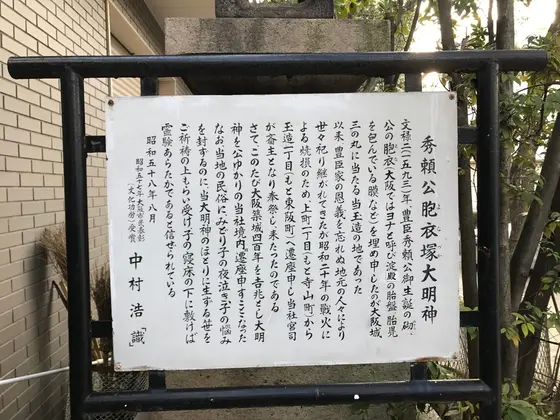 秀頼公胞衣塚大明神
文禄二(一五九三)年、豊臣秀頼公御生誕の砌、
公の胞衣(大阪ではヨナと呼び淀殿の胎盤、胎児
を包んでいる膜など)を埋め申したのが大阪城
三の丸に当たる当玉造の地であった
以来、豊臣家の恩義を忘れぬ地元の人々により
世々祀り継がれてきたが昭和二十年の戦火に
よる焼損のため、上町一丁目(もと寺山町)から
玉造一丁目(もと東阪町)へ遷座申し当社宮司
が斎主となり奉祭し来たったのである
さてこのたび大阪築城四百年を吉兆とし大明
神を公ゆかりの当社境内へ遷座申すこととなった
なお当地の民俗にみどり子の夜泣き子の悩み
を封ずるのに、当大明神のほとりに生ずる笹を
ご祈祷の上もらい受け子の寝床の下に敷けば
霊験あらたかであると信ぜられている
昭和五十八年八月
昭和五十七年大阪市民表彰
(文化功労)受賞
中村 浩「識」